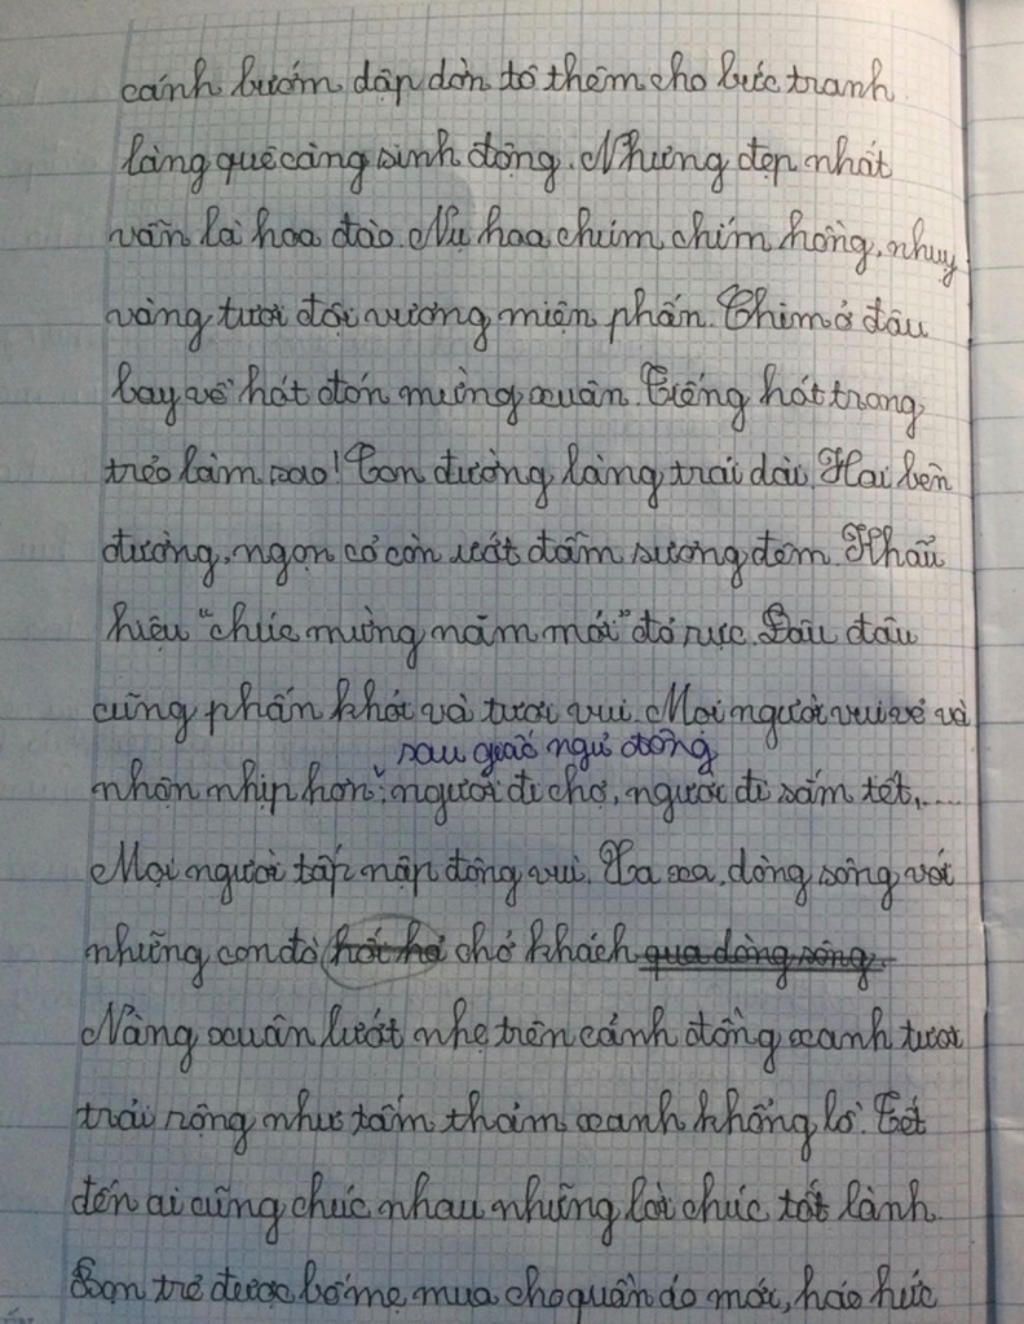 cánh bướm dập dờn tô thêm cho bức tranh
làng quê càng sinh động. Nhưng đẹp nhất
vẫn là hoa đào. Nụ hoa chúm chím hồng, nhụy
vàng tươi đội vương miện phấn. Chim ở đâu
bay về hát đón mừng xuân. Tiếng hát trong
trẻo làm sao! Con đường làng trải dài. Hai bên
đường, ngọn cỏ còn ướt đẫm sương đêm. Khẩu
hiệu "chúc mừng năm mới" đỏ rực. Đâu đâu
cũng phấn khởi và tươi vui. Mọi người vui vẻ và
sau giấc ngủ đông
nhộn nhịp hơn: người đi chợ, người đi sắm tết,....
Mọi người tấp nập đông vui. Xa xa, dòng sông với
những con đò hối hả chở khách qua dòng sông.
Nàng xuân lướt nhẹ trên cánh đồng xanh tươi
trải rộng như tấm thảm xanh khổng lồ. Tết
đến ai cũng chúc nhau những lời chúc tốt lành.
Bọn trẻ được bố mẹ mua cho quần áo mới, háo hức